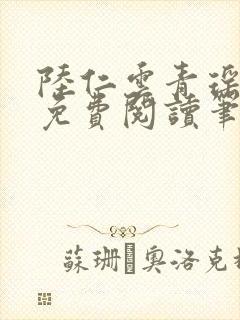 陸仁雲青瑤
免費閱讀筆
蘇珊·奧洛克